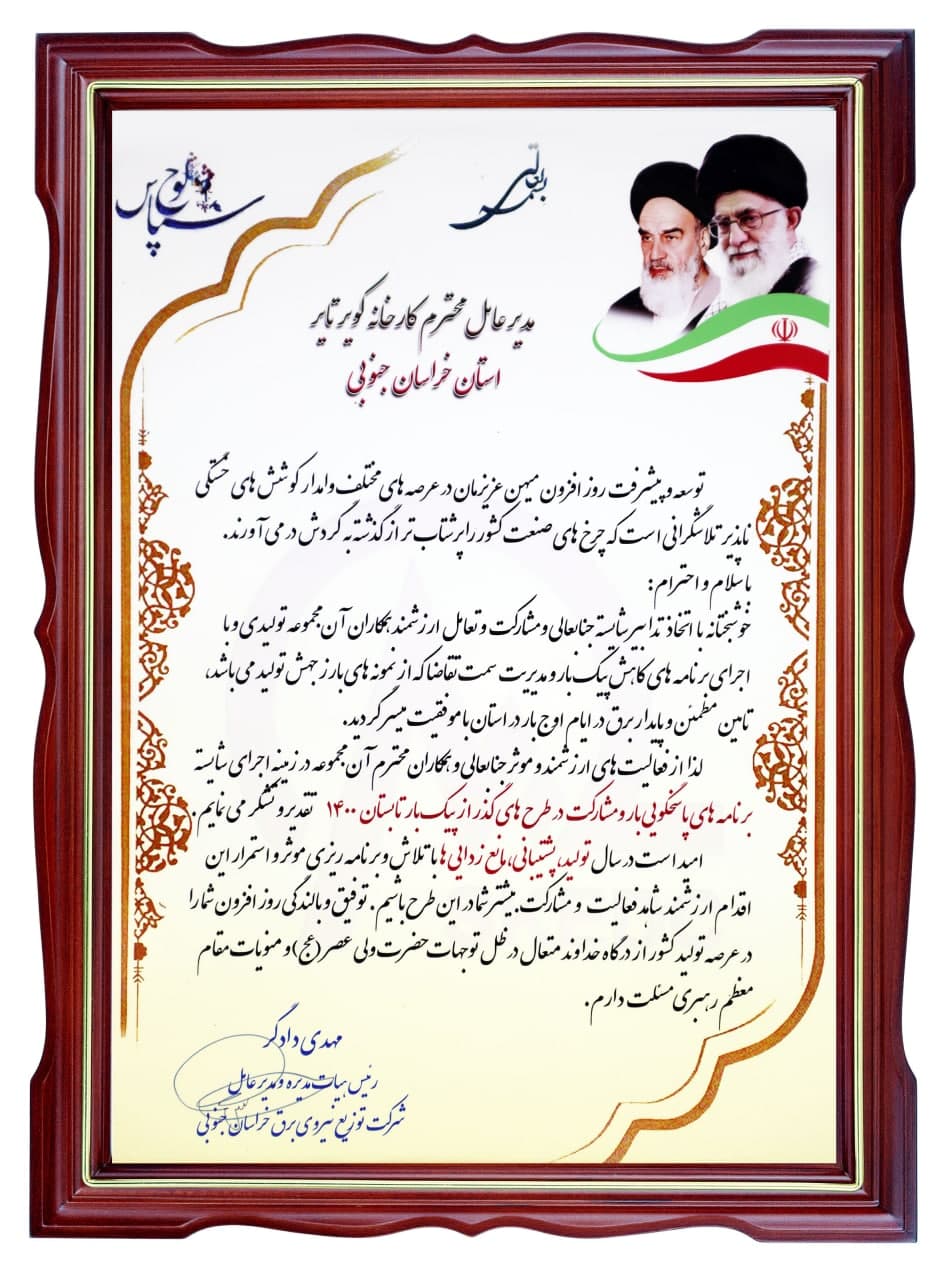 بسمه تعالی
لوح سپاس
مدیر عامل محترم کارخانه کویر تایر
استان خراسان جنوبی
توسعه و پیشرفت روز افزون میهن عزیزمان در عرصه های مختلف وامدار کوشش های خستگی
ناپذیر تلاشگرانی است که چرخ های صنعت کشور را پرشتاب تر از گذشته به گردش در می آورند.
با سلام و احترام:
خوشبختانه با اتخاذ تدابیر شایسته جنابعالی و مشارکت و تعامل ارزشمند همکاران آن مجموعه تولیدی و با
اجرای برنامه های کاهش پیک بار و مدیریت سمت تقاضا که از نمونه های بارز جهش تولید می باشد،
تامین مطمئن و پایدار برق در ایام اوج بار در استان با موفقیت میسر گردید.
لذا از فعالیت های ارزشمند و موثر جنابعالی و همکاران محترم آن مجموعه در زمینه اجرای شایسته
برنامه های پاسخگویی بار و مشارکت در طرح های گذر از پیک بار تابستان ۱۴۰۰ تقدیر و تشکر می نمایم.
امید است در سال تولید، پشتیبانی، مانع زدایی ها با تلاش و برنامه ریزی موثر و استمرار این
اقدام ارزشمند شاهد فعالیت و مشارکت بیشتر شما در این طرح باشیم. توفیق و بالندگی روز افزون شما را
در عرصه تولید کشور از درگاه خداوند متعال در ظل توجهات حضرت ولی عصر (عج) و منویات مقام
معظم رهبری مسئلت دارم.
مهدی دادگر
رئیس هیات مدیره و مدیر عامل
شرکت توزیع نیروی برق خراسان جنوبی